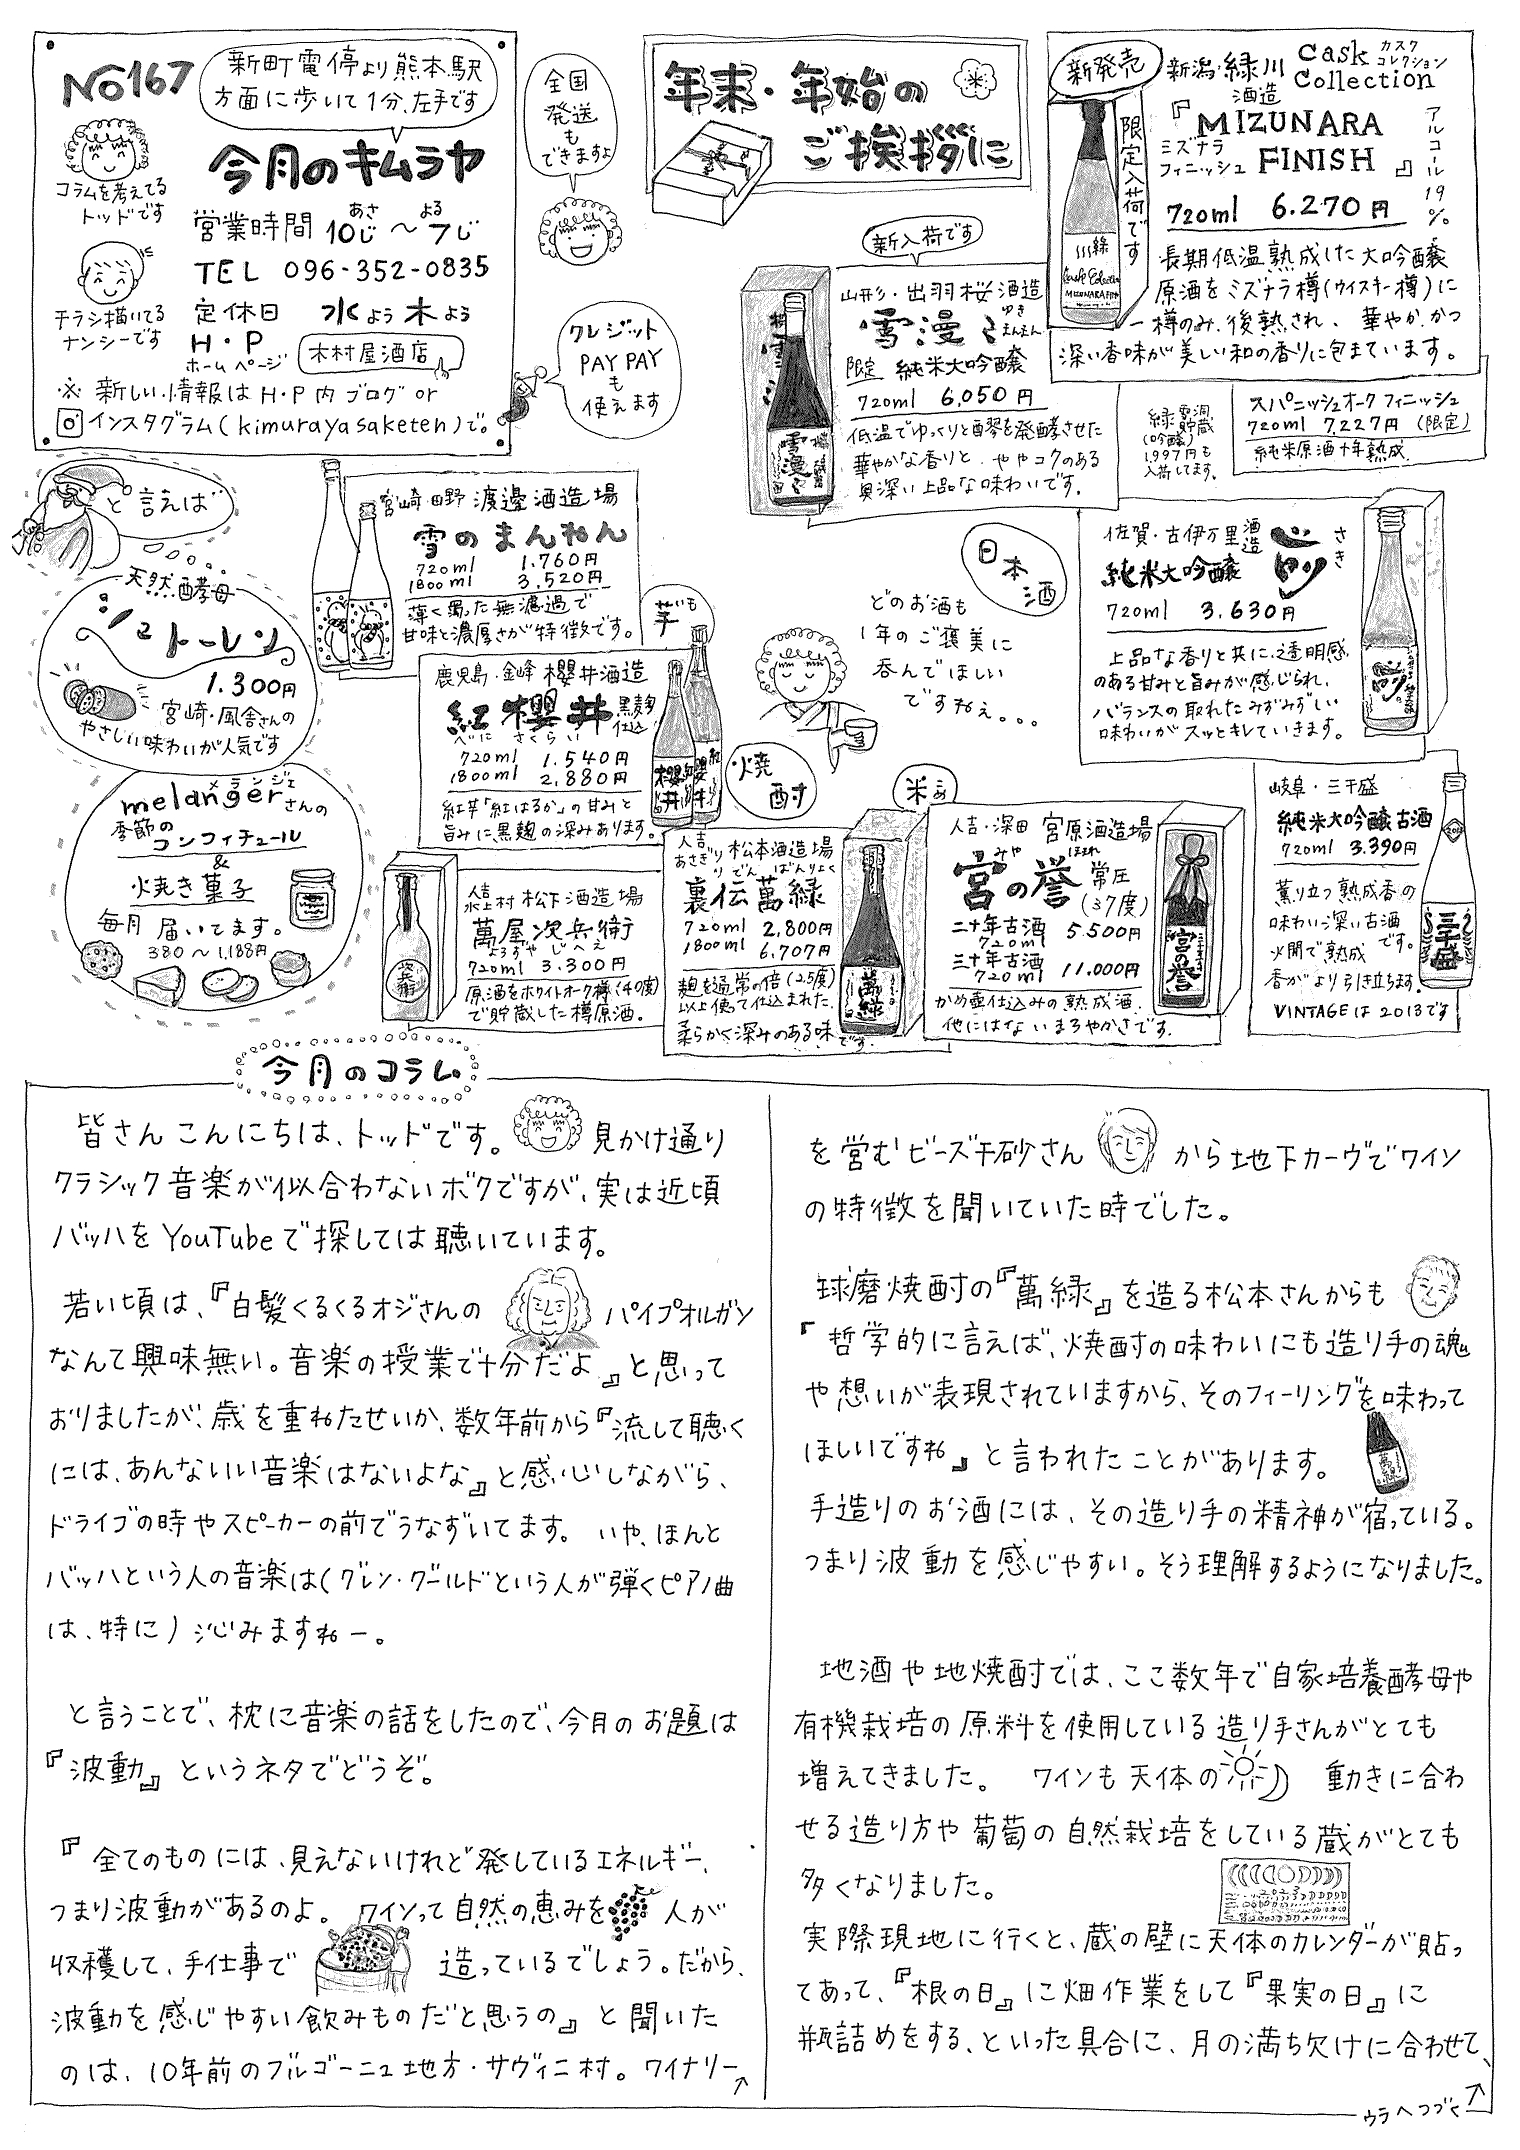 No167
新町電停より熊本駅
方面に歩いて1分、左手です
今月のキムラヤ
コラムを考えてる
トッドです
営業時間 10じ～7じ
あさ よる
TEL 096-352-0835
チラシ描いてる
ナンシーです
定休日 水よう木よう
H・P
ホームページ
木村屋酒店
※新しい情報はH・P内ブログor
インスタグラム(kimurayasaketen)で。
全国
発送
も
できますよ
クレジット
PAYPAY
も
使えます
年末・年始の
ご挨拶に
新発売
新潟・緑川
酒造
Cask
Collection
カスク
コレクション
『MIZUNARA
FINISH』
ミズナラ
フィニッシュ
アルコール19%
限定入荷です
720ml 6.270円
長期低温熟成した大吟醸
原酒をミズナラ樽(ウイスキー樽)に
一樽のみ、後熟され、華やか、かつ
深い香味が美しい和の香りに包まれています。
緑
Cask Collection
MIZUNARA FINISH
スパニッシュオークフィニッシュ
720ml 7.227円 (限定)
純米原酒十年熟成
緑 雪洞
貯蔵
(吟醸)
1.997円も
入荷してます。
新入荷です
山形・出羽桜酒造
雪漫々
ゆき
まんまん
限定 純米大吟醸
720ml 6.050円
低温でゆっくりと醪を発酵させた
華やかな香りと、ややコクのある
奥深い上品な味わいです。
雪漫々
と言えば
天然酵母
シュトーレン
1.300円
宮崎・風舎さんの
やさしい味わいが人気です
メランジェ
melangerさんの
季節の
コンフィチュール
&
焼き菓子
毎月届いてます。
380～1.188円
宮崎・田野 渡邊酒造場
雪のまんねん
720ml 1.760円
1800ml 3.520円
薄く濁った無濾過で
甘味と濃厚さが特徴です。
芋
いも
鹿児島・金峰 櫻井酒造
紅櫻井
黒麹
仕込
べに さくらい
720ml 1.540円
1800ml 2.880円
紅芋「紅はるか」の甘みと
旨みに黒麹の深みあります。
焼酎
日本酒
どのお酒も
1年のご褒美に
呑んでほしい
ですねぇ。。。
佐賀・古伊万里酒造
さき
純米大吟醸
720ml 3.630円
上品な香りと共に、透明感
のある甘みと旨みが感じられ、
バランスの取れたみずみずしい
味わいがスッとキレていきます。
岐阜・三千盛
純米大吟醸古酒
720ml 3.390円
薫り立つ熟成香の
味わい深い古酒
です。
火開で熟成
香がより引き立ちます。
VINTAGEは2013です
三千盛
水上村 松下酒造場
萬屋次兵衛
よろずや じへえ
720ml 3.300円
原酒をホワイトオーク樽(40度)
で貯蔵した樽原酒。
人吉
あさぎり 松本酒造場
りでん ばんりょく
裏伝萬緑
720ml 2.800円
1800ml 6.707円
麹を通常の倍(2.5度)
以上使って仕込まれた、
柔らかく深みのある味です。
萬緑
米
人吉・深田 宮原酒造場
みや ほまれ
宮の誉
常圧
(37度)
二十年古酒
720ml
5.500円
三十年古酒
720ml
11.000円
かめ壺仕込みの熟成酒。
他にはないまろやかさです。
宮の誉
今月のコラム
皆さんこんにちは、トッドです。見かけ通り
クラシック音楽が似合わないボクですが、実は近頃
バッハをYouTubeで探しては聴いています。
若い頃は、『白髪くるくるオジさんのパイプオルガン
なんて興味無い。音楽の授業で十分だよ』と思って
おりましたが、歳を重ねたせいか、数年前から『流して聴く
には、あんないい音楽はないよな』と感心しながら、
ドライブの時やスピーカーの前でうなずいてます。いや、ほんと
バッハという人の音楽は(グレン・グールドという人が弾くピアノ曲
は、特に)沁みますねー。
と言うことで、枕に音楽の話をしたので、今月のお題は
『波動』というネタでどうぞ。
『全てのものには、見えないけれど発しているエネルギー、
つまり波動があるのよ。ワインって自然の恵みを人が
収穫して、手仕事で造っているでしょう。だから、
波動を感じやすい飲みものだと思うの』と聞いた
のは、10年前のブルゴーニュ地方・サヴィニ村。ワイナリー
を営むビーズ千砂さんから地下カーヴでワイン
の特徴を聞いていた時でした。
球磨焼酎の『萬緑』を造る松本さんからも
『哲学的に言えば、焼酎の味わいにも造り手の魂
や想いが表現されていますから、そのフィーリングを味わって
ほしいですね』と言われたことがあります。
手造りのお酒には、その造り手の精神が宿っている。
つまり波動を感じやすい。そう理解するようになりました。
地酒や地焼酎では、ここ数年で自家培養酵母や
有機栽培の原料を使用している造り手さんがとても
増えてきました。ワインも天体の動きに合わ
せる造り方や葡萄の自然栽培をしている蔵がとても
多くなりました。
実際現地に行くと、蔵の壁に天体のカレンダーが貼っ
てあって、『根の日』に畑作業をして『果実の日』に
瓶詰めをする、といった具合に、月の満ち欠けに合わせて、
ウラへつづく